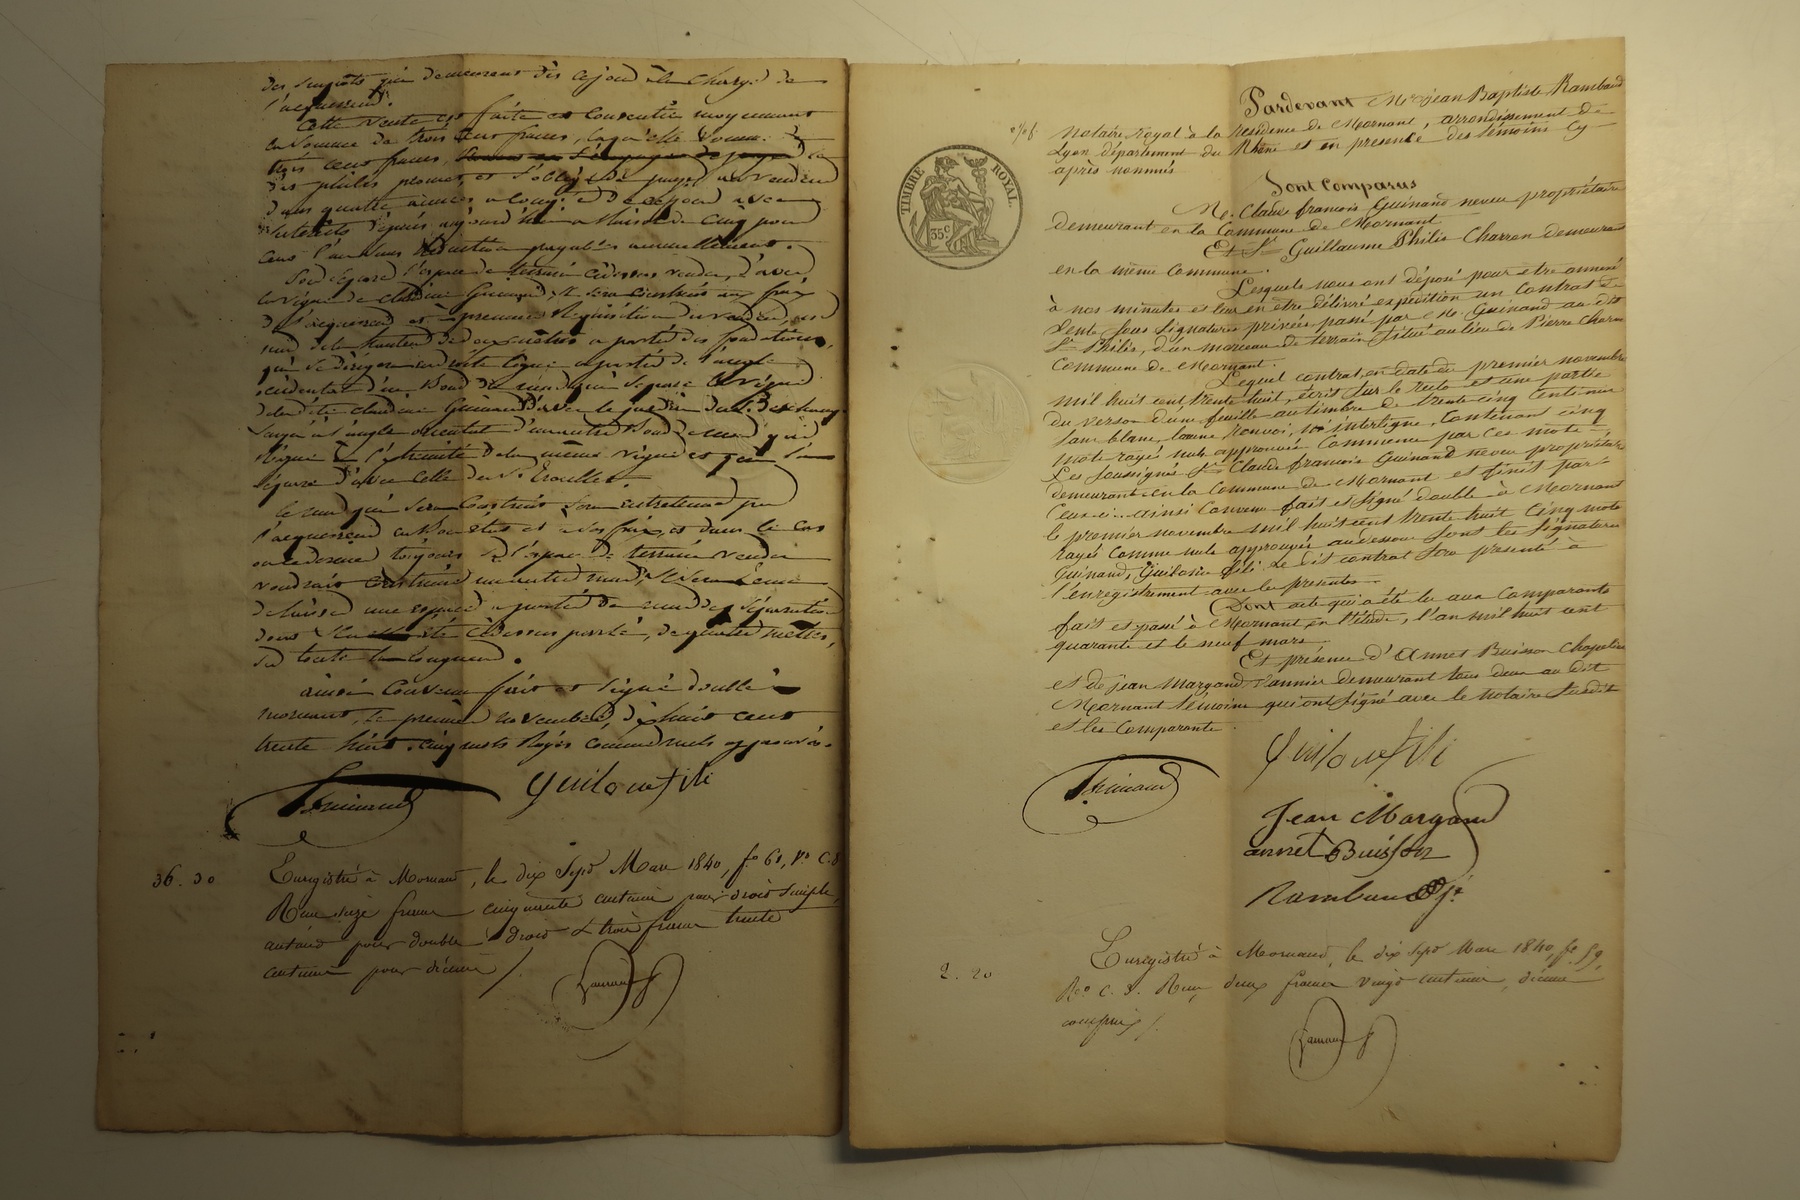 des impôts qui demeurent dès ce jour à la charge de
l'acquéreur.
Cette vente est faite et consentie moyennant
la somme de trois cent francs, laquelle somme de
trois cent francs,
dans quatre années à compter de ce jour avec
intérêts depuis aujourd'hui à raison de cinq pour
cent l'an sans réduction payables annuellement.
l'espace de terrain cidessus vendu, d'avec
la vigne de Claudine Guinand, il sera construit aux frais
de l'acquéreur et à première réquisition du vendeur, un
mur de la hauteur de deux mètres à partir des fondations,
qui se dirigera en droite ligne à partir de l'angle
occidental d'un bout de mur qui sépare la vigne
de la dite Claudine Guinand d'avec le jardin du
jusqu'à l'angle oriental d'un autre bout de mur qui
règne à l'extrémité de la même vigne et qui la
sépare d'avec celle du
le mur qui sera construit sera entretenu par
l'acquéreur en bon état et à ses frais, et dans le cas
ou acquéreur toujours de l'espace de terrain vendu
voudrait construire un autre mur, il sera tenu
de laisser une espace à partir du mur de séparation
dont il a été cidessus parlé, de quatre mètres,
sur toute la longueur.
ainsi convenu fait et signé double à
mornant, le premier novembre, dixhuit cent
trente huit. cinq mots rayés comme nuls approuvés.
Guinand
Guilaume fili
36. 30
Enregistré à Mornant, le dix sept Mars 1840, fo 61, Vo C. 8
Reçu seize francs cinquante centimes pour droit simple,
autant pour double droit & trois francs trente
centimes pour décime /.
Pardevant Me Jean Baptiste Rambaud
Notaire royal à la résidence de Mornant, arrondissement de
Lyon département du Rhône et en présence des témoins cy
après nommés
TIMBRE ROYAL.
35 c
Sont Comparus
Mr. Claude françois Guinand neveu propriétaire
demeurant en la Commune de Mornant
Et Sr Guillaume Philis Charron demeurant
en la même Commune.
Lesquels nous ont déposé pour être annexé
à nos minutes et leur en être délivré expédition un contrat de
Vente sous signatures privées passé par Mr Guinand au dit
Sr Philis, d'un morceau de terrain situé au lieu de Pierre Charron
Commune de Mornant.
Lequel contrat, en date du premier novembre
mil huit cent trente huit, écrit sur le recto et une partie
du verso d'une feuille au timbre de trente cinq centimes
sans blanc, lacune, renvoi, ni interligne, Contenant cinq
mots rayés nuls approuvés Commence par ces mots =
Les soussignés Sr Claude françois Guinand neveu propriétaire
demeurant en la Commune de Mornant et finit par
Ceux-ci = ainsi convenu fait et signé double à Mornant
le premier novembre mil huit cent trente huit Cinq mots
rayés Comme nuls approuvés au dessous sont les signatures
Guinand, Guilaume fili. Le dit contrat sera présenté à
l'enregistrement avec les présentes.
Dont acte qui a été lu aux Comparants
fait et passé à Mornant en l'étude, l'an mil huit cent
quarante et le neuf mars.
En présence d'Annet Buisson Chapelier
et de Jean Margand Vannier demeurant tous deux au dit
Mornant témoins qui ont signé avec le notaire susdit
et les Comparants
Guilaume fili
Guinand
Jean Margand
annet Buisson
Rambaud
2. 20
Enregistré à Mornant, le dix sept Mars 1840, fo. 59,
Ro. C. 3. Reçu deux francs vingt centimes, décime
compris /.